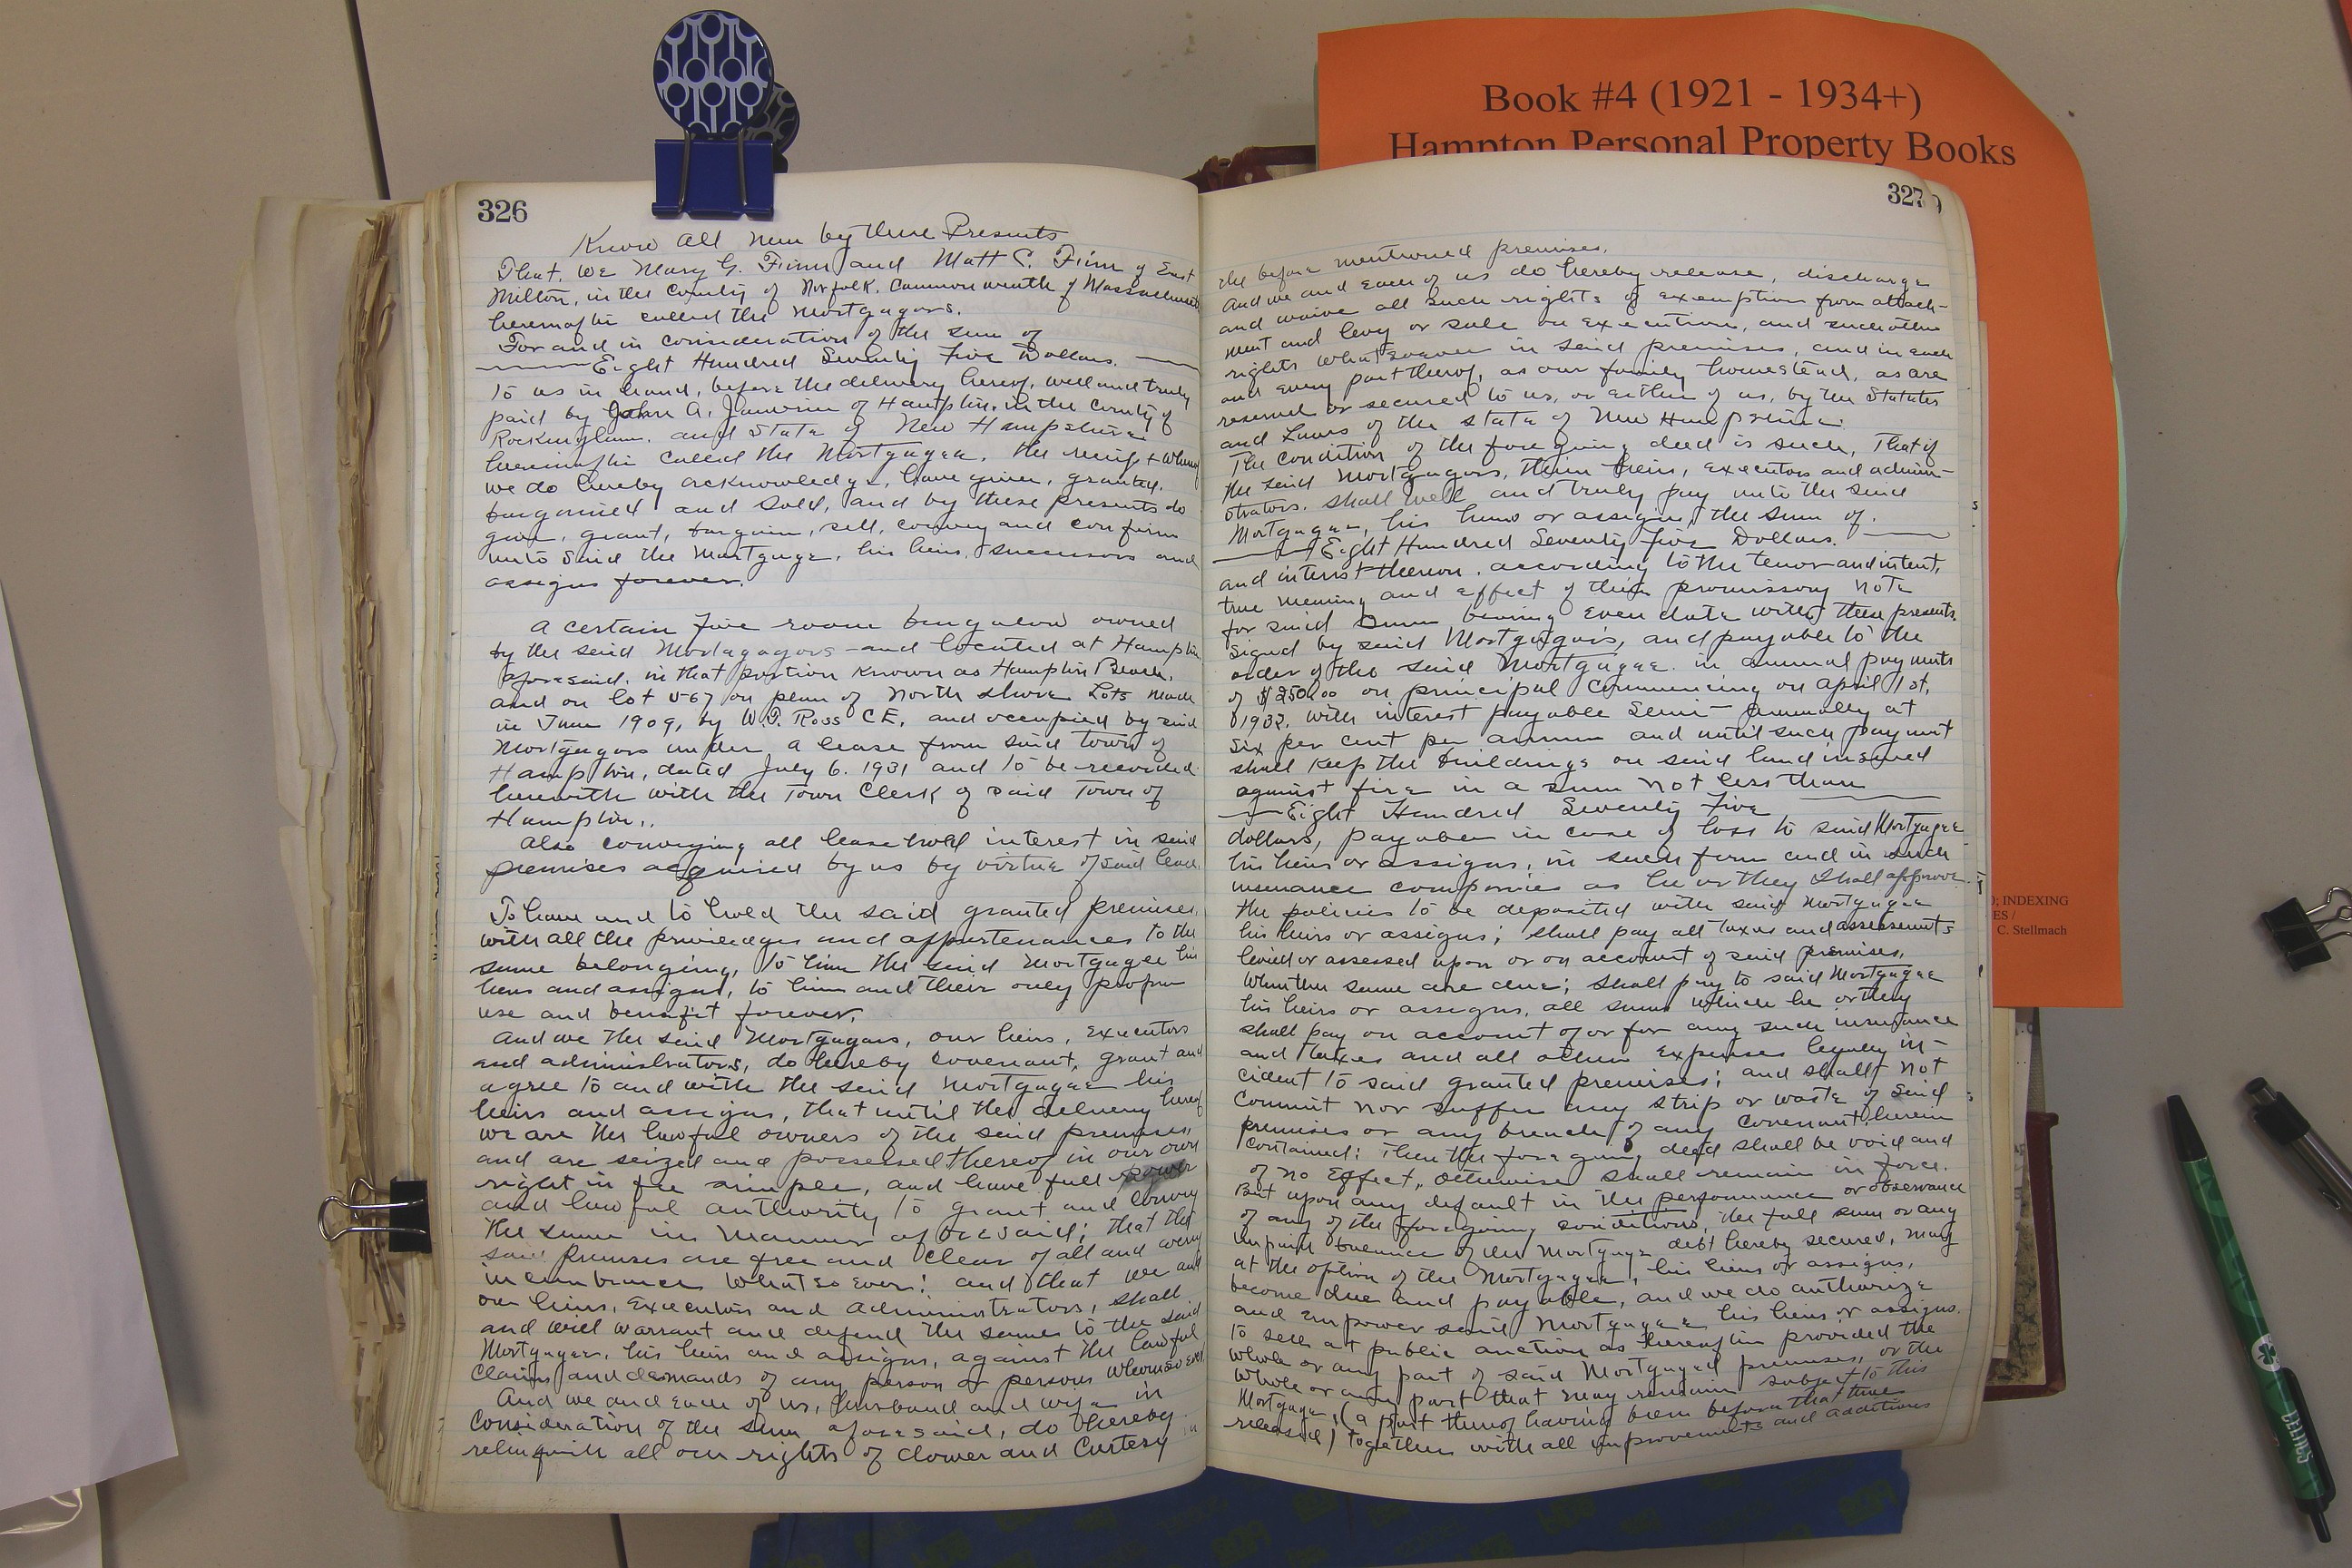 Book #4 (1921 - 1934+)
Hampton Personal Property Books
326
Know All Men by these Presents
That, we Mary G. Finn and Matt C. Finn of East
Milton, in the County of Norfolk, Commonwealth of Massachusetts
hereinafter called the Mortgagors.
For and in consideration of the sum of
Eight Hundred Seventy Five Dollars.
to us in hand, before the delivery hereof, well and truly
paid by John A. Janvrin of Hampton, in the County of
Rockingham, and State of New Hampshire
hereinafter called the Mortgagee, the receipt whereof
we do hereby acknowledge, have given, granted,
bargained and sold, and by these presents do
give, grant, bargain, sell, convey and confirm
unto said the Mortgagee, his heirs, successors and
assigns forever.
A certain five room bungalow owned
by the said Mortagagors and located at Hampton
aforesaid, in that portion known as Hampton Beach,
and on lot 567 on plan of North Shore Lots made
in June 1909, by W.T. Ross C.E. and occupied by said
Mortgagors under a lease from said town of
Hampton, dated July 6. 1931 and to be recorded
herewith with the Town Clerk of said Town of
Hampton..
Also conveying all lease hold interest in said
premises acquired by us by virtue of said lease
To have and to hold the said granted premises,
with all the privileges and appurtenances to the
same belonging, to him the said Mortgagee his
heirs and assigns, to him and their only proper
use and benefit forever.
And we the said Mortgagors, our heirs, executors
and administrators, do hereby covenant, grant and
agree to and with the said Mortgagee his
heirs and assigns, that until the delivery hereof
we are the lawful owners of the said premises,
and are seized and possessed thereof in our own
right in fee simple, and have full power
and lawful authority to grant and convey
the same in manner aforesaid; that the
said premises are free and clear of all and every
incumbrance whatsoever; and that we and
our heirs, executors and administrators, shall
and will warrant and defend the same to the said
Mortgagee, his heirs and assigns, against the lawful
claims and demands of any person or persons whomsoever
And we and each of us, husband and wife in
consideration of the sum aforesaid, do hereby
relinquish all our rights of dower and curtesy in
327
the before mentioned premises.
And we and each of us do hereby release, discharge
and waive all such rights of exemption from attach-
ment and levy or sale on execution, and such other
rights whatsoever in said premises, and in each
and every part thereof, as our family homestead, as are
reserved or secured to us, or either of us, by the Statutes
and Laws of the State of New Hampshire.
The condition of the foregoing deed is such, that if
the said Mortgagors, their heirs, executors and admin-
strators, shall well and truly pay unto the said
Mortgagee, his heirs or assigns, the sum of.
Eight Hundred Seventy Five Dollars.
and interest thereon, according to the tenor and intent,
true meaning and effect of their promissory note
for said sum bearing even date with these presents,
signed by said Mortgagors, and payable to the
order of the said Mortgagee in annual payments
of $250.00 on principal commencing on April 1st,
1932, with interest payable Semi-Annually at
six per cent per annum and until such payment
shall keep the buildings on said land insured
against fire in a sum not less than
Eight Hundred Seventy Five
dollars, payable in case of loss to said Mortgagee
his heirs or assigns, in such form and in such
insurance companies as he or they shall approve
the policies to be deposited with said Mortgagee
his heirs or assigns; shall pay all taxes and assessments
levied or assessed upon or on account of said premises,
when the same are due; shall pay to said Mortgagee
his heirs or assigns, all sums which he or they
shall pay on account of or for any such insurance
and taxes and all other expenses legally in-
cident to said granted premises; and shall not
commit nor suffer any strip or waste of said
premises or any breach of any covenant herein
contained; then the foregoing deed shall be void and
of no effect, otherwise shall remain in force.
But upon any default in the performance or observance
of any of the foregoing conditions, the full sum or any
unpaid balance of the Mortgage debt hereby secured, may
at the option of the Mortgagee, his heirs or assigns,
become due and payable, and we do authorize
and empower said Mortgagee his heirs or assigns.
to sell at public auction as hereafter provided the
whole or any part of said Mortgaged premises, or the
whole or any part that may remain subject to this
Mortgage, (a part thereof having been before that time
released) together with all improvements and additions
INDEXING
C. Stellmach